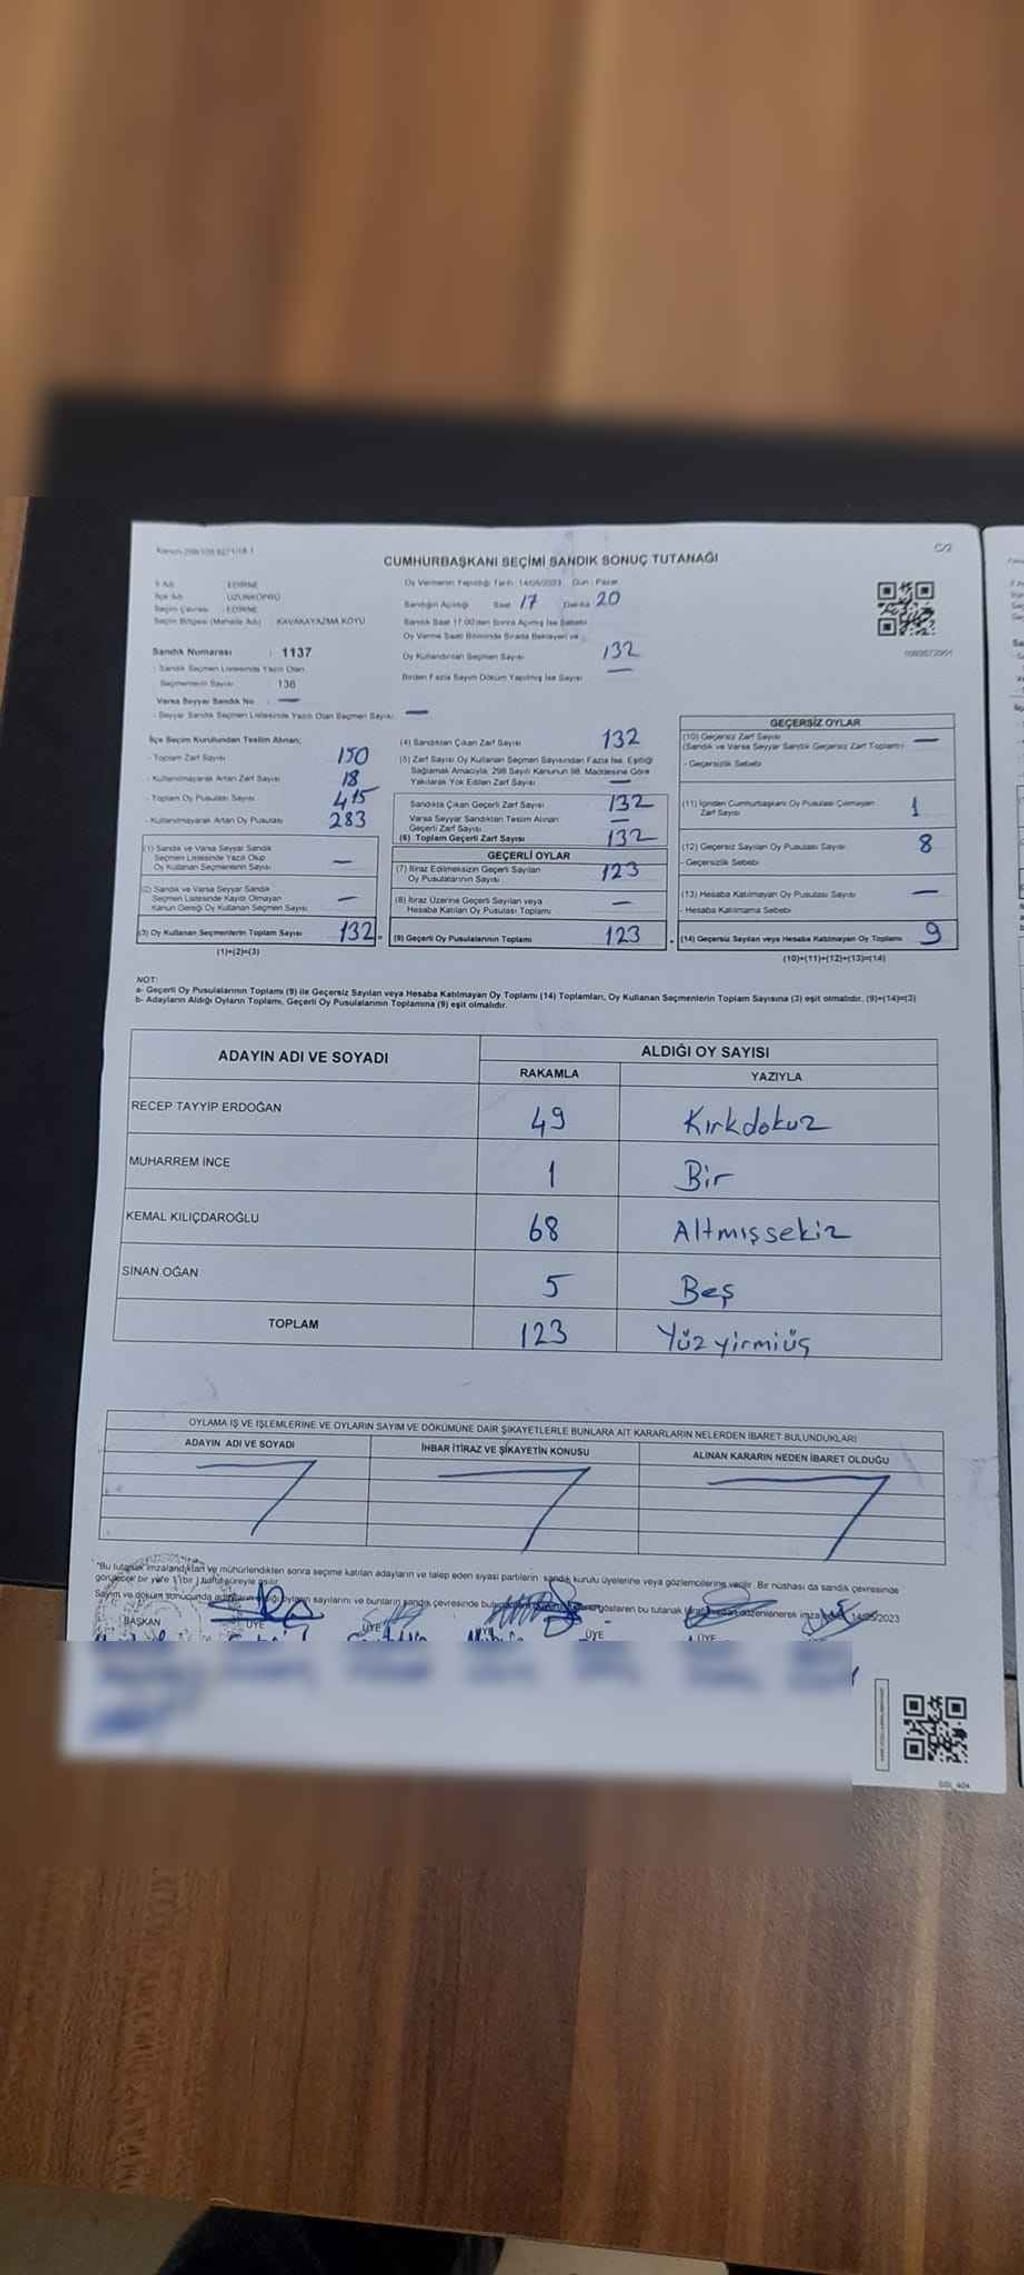 C/2
CUMHURBAŞKANI SEÇİMİ SANDIK SONUÇ TUTANAĞI
İl Adı : EDİRNE
İlçe Adı : UZUNKÖPRÜ
Seçim Çevresi : EDİRNE
Seçim Bölgesi (Mahalle Adı) : KAVAKAYAZMA KÖYÜ
Sandık Numarası : 1137
- Sandık Seçmen Listesinde Yazılı Olan
Seçmenlerin Sayısı : 136
Varsa Seyyar Sandık No : —
- Seyyar Sandık Seçmen Listesinde Yazılı Olan Seçmen Sayısı : —
Oy Vermenin Yapıldığı Tarih : 14/05/2023 Gün : Pazar
Sandığın Açıldığı Saat 17 Dakika 20
Sandık Saat 17.00'den Sonra Açılmış İse Sebebi
Oy Verme Saati Bitiminde Sırada Bekleyen ve
Oy Kullandırılan Seçmen Sayısı 132
Birden Fazla Sayım Döküm Yapılmış İse Sayısı —
İlçe Seçim Kurulundan Teslim Alınan;
- Toplam Zarf Sayısı 150
- Kullanılmayarak Artan Zarf Sayısı 18
- Toplam Oy Pusulası Sayısı 415
- Kullanılmayarak Artan Oy Pusulası 283
(1) Sandık ve Varsa Seyyar Sandık
Seçmen Listesinde Yazılı Olup
Oy Kullanan Seçmenlerin Sayısı —
(2) Sandık ve Varsa Seyyar Sandık
Seçmen Listesinde Kayıtlı Olmayan
Kanun Gereği Oy Kullanan Seçmen Sayısı —
(3) Oy Kullanan Seçmenlerin Toplam Sayısı 132
(1)+(2)=(3)
(4) Sandıktan Çıkan Zarf Sayısı 132
(5) Zarf Sayısı Oy Kullanan Seçmen Sayısından Fazla İse, Eşitliği
Sağlamak Amacıyla, 298 Sayılı Kanunun 98. Maddesine Göre
Yakılarak Yok Edilen Zarf Sayısı —
Sandıkta Çıkan Geçerli Zarf Sayısı 132
Varsa Seyyar Sandıktan Teslim Alınan
Geçerli Zarf Sayısı —
(6) Toplam Geçerli Zarf Sayısı 132
GEÇERLİ OYLAR
(7) İtiraz Edilmeksizin Geçerli Sayılan
Oy Pusulalarının Sayısı 123
(8) İtiraz Üzerine Geçerli Sayılan veya
Hesaba Katılan Oy Pusulası Toplamı —
(9) Geçerli Oy Pusulalarının Toplamı 123
GEÇERSİZ OYLAR
(10) Geçersiz Zarf Sayısı
(Sandık ve Varsa Seyyar Sandık Geçersiz Zarf Toplamı) —
- Geçersizlik Sebebi
(11) İçinden Cumhurbaşkanı Oy Pusulası Çıkmayan
Zarf Sayısı 1
(12) Geçersiz Sayılan Oy Pusulası Sayısı 8
- Geçersizlik Sebebi
(13) Hesaba Katılmayan Oy Pusulası Sayısı —
- Hesaba Katılmama Sebebi
(14) Geçersiz Sayılan veya Hesaba Katılmayan Oy Toplamı 9
(10)+(11)+(12)+(13)=(14)
NOT:
a- Geçerli Oy Pusulalarının Toplamı (9) ile Geçersiz Sayılan veya Hesaba Katılmayan Oy Toplamı (14) Toplamları, Oy Kullanan Seçmenlerin Toplam Sayısına (3) eşit olmalıdır. (9)+(14)=(3)
b- Adayların Aldığı Oyların Toplamı, Geçerli Oy Pusulalarının Toplamına (9) eşit olmalıdır.
ADAYIN ADI VE SOYADI
ALDIĞI OY SAYISI
RAKAMLA YAZIYLA
RECEP TAYYİP ERDOĞAN 49 Kırkdokuz
MUHARREM İNCE 1 Bir
KEMAL KILIÇDAROĞLU 68 Altmışsekiz
SİNAN OĞAN 5 Beş
TOPLAM 123 Yüzyirmiüç
OYLAMA İŞ VE İŞLEMLERİNE VE OYLARIN SAYIM VE DÖKÜMÜNE DAİR ŞİKAYETLERLE BUNLARA AİT KARARLARIN NELERDEN İBARET BULUNDUKLARI
ADAYIN ADI VE SOYADI İHBAR İTİRAZ VE ŞİKAYETİN KONUSU ALINAN KARARIN NEDEN İBARET OLDUĞU
"Bu tutanak imzalandıktan ve mühürlendikten sonra seçime katılan adayların ve talep eden siyasi partilerin sandık kurulu üyelerine veya gözlemcilerine verilir. Bir nüshası da sandık çevresinde
görülecek bir yere 1 (bir) hafta süreyle asılır.
Sayım ve döküm sonucunda oyların sayılarını ve bunların sandık çevresinde gösteren bu tutanak düzenlenerek 14/05/2023
BAŞKAN ÜYE ÜYE ÜYE ÜYE